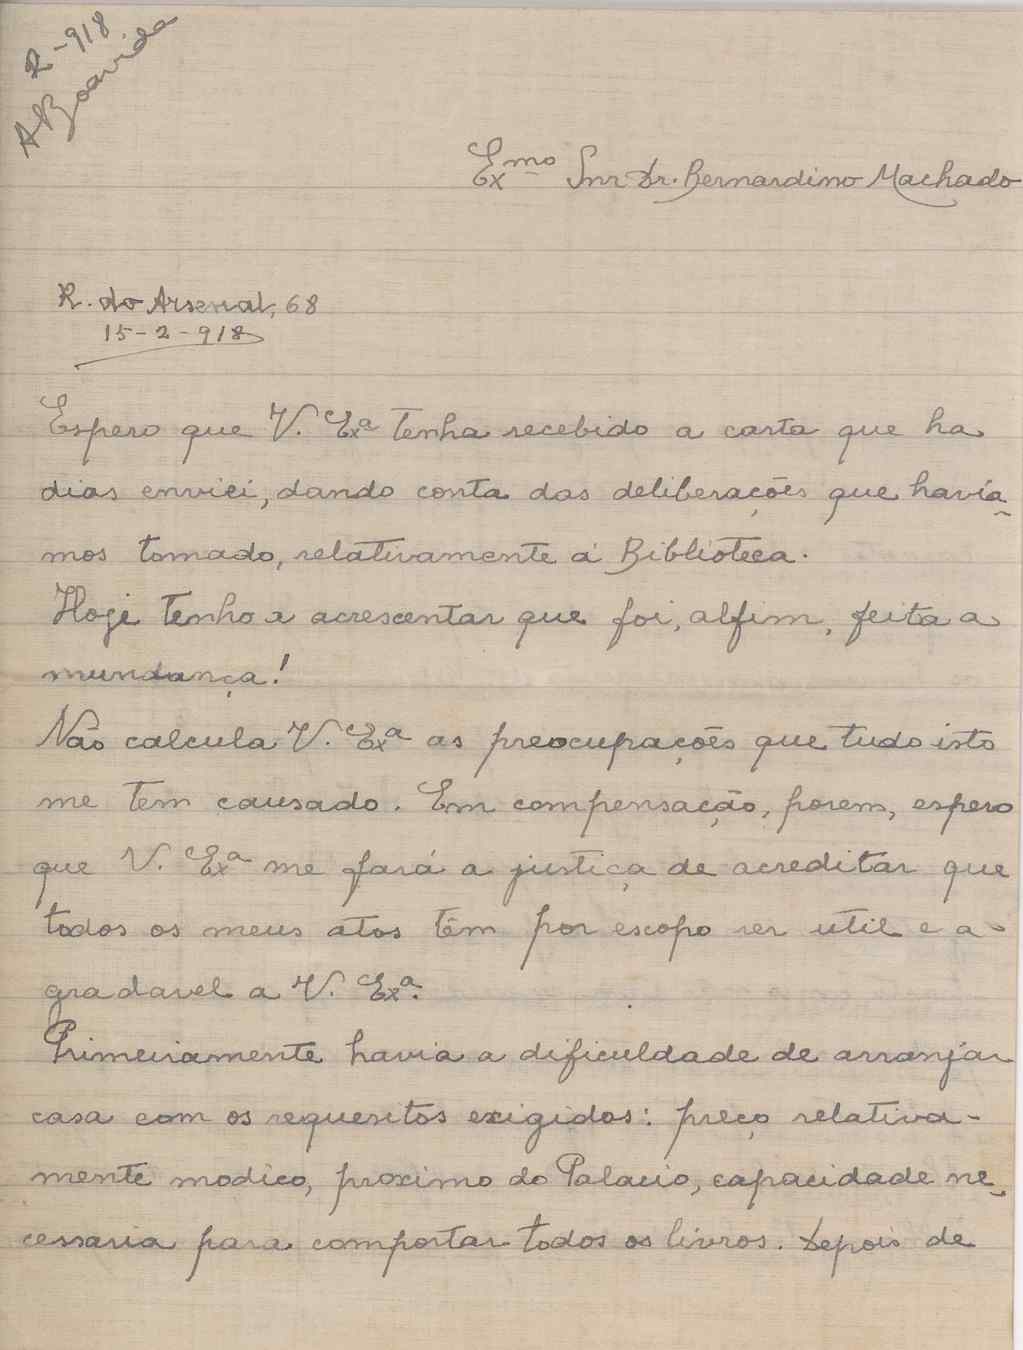 R-918
A Boavida
Exmo Snr Dr. Bernardino Machado
R. do Arsenal, 68
15-2-918
Espero que V. Exa tenha recebido a carta que ha
dias enviei, dando conta das deliberações que havía-
mos tomado, relativamente á Biblioteca.
Hoje tenho a acrescentar que foi, alfim, feita a
mundança!
Não calcula V. Exa as preocupações que tudo isto
me tem causado. Em compensação, porem, espero
que V. Exa me fará a justiça de acreditar que
todos os meus atos têm por escopo ser util e a-
gradavel a V. Exa.
Primeiramente havia a dificuldade de arranjar
casa com os requesitos exigidos: preço relativa-
mente modico, proximo do Palacio, capacidade ne-
cessaria para comportar todos os livros. Depois de